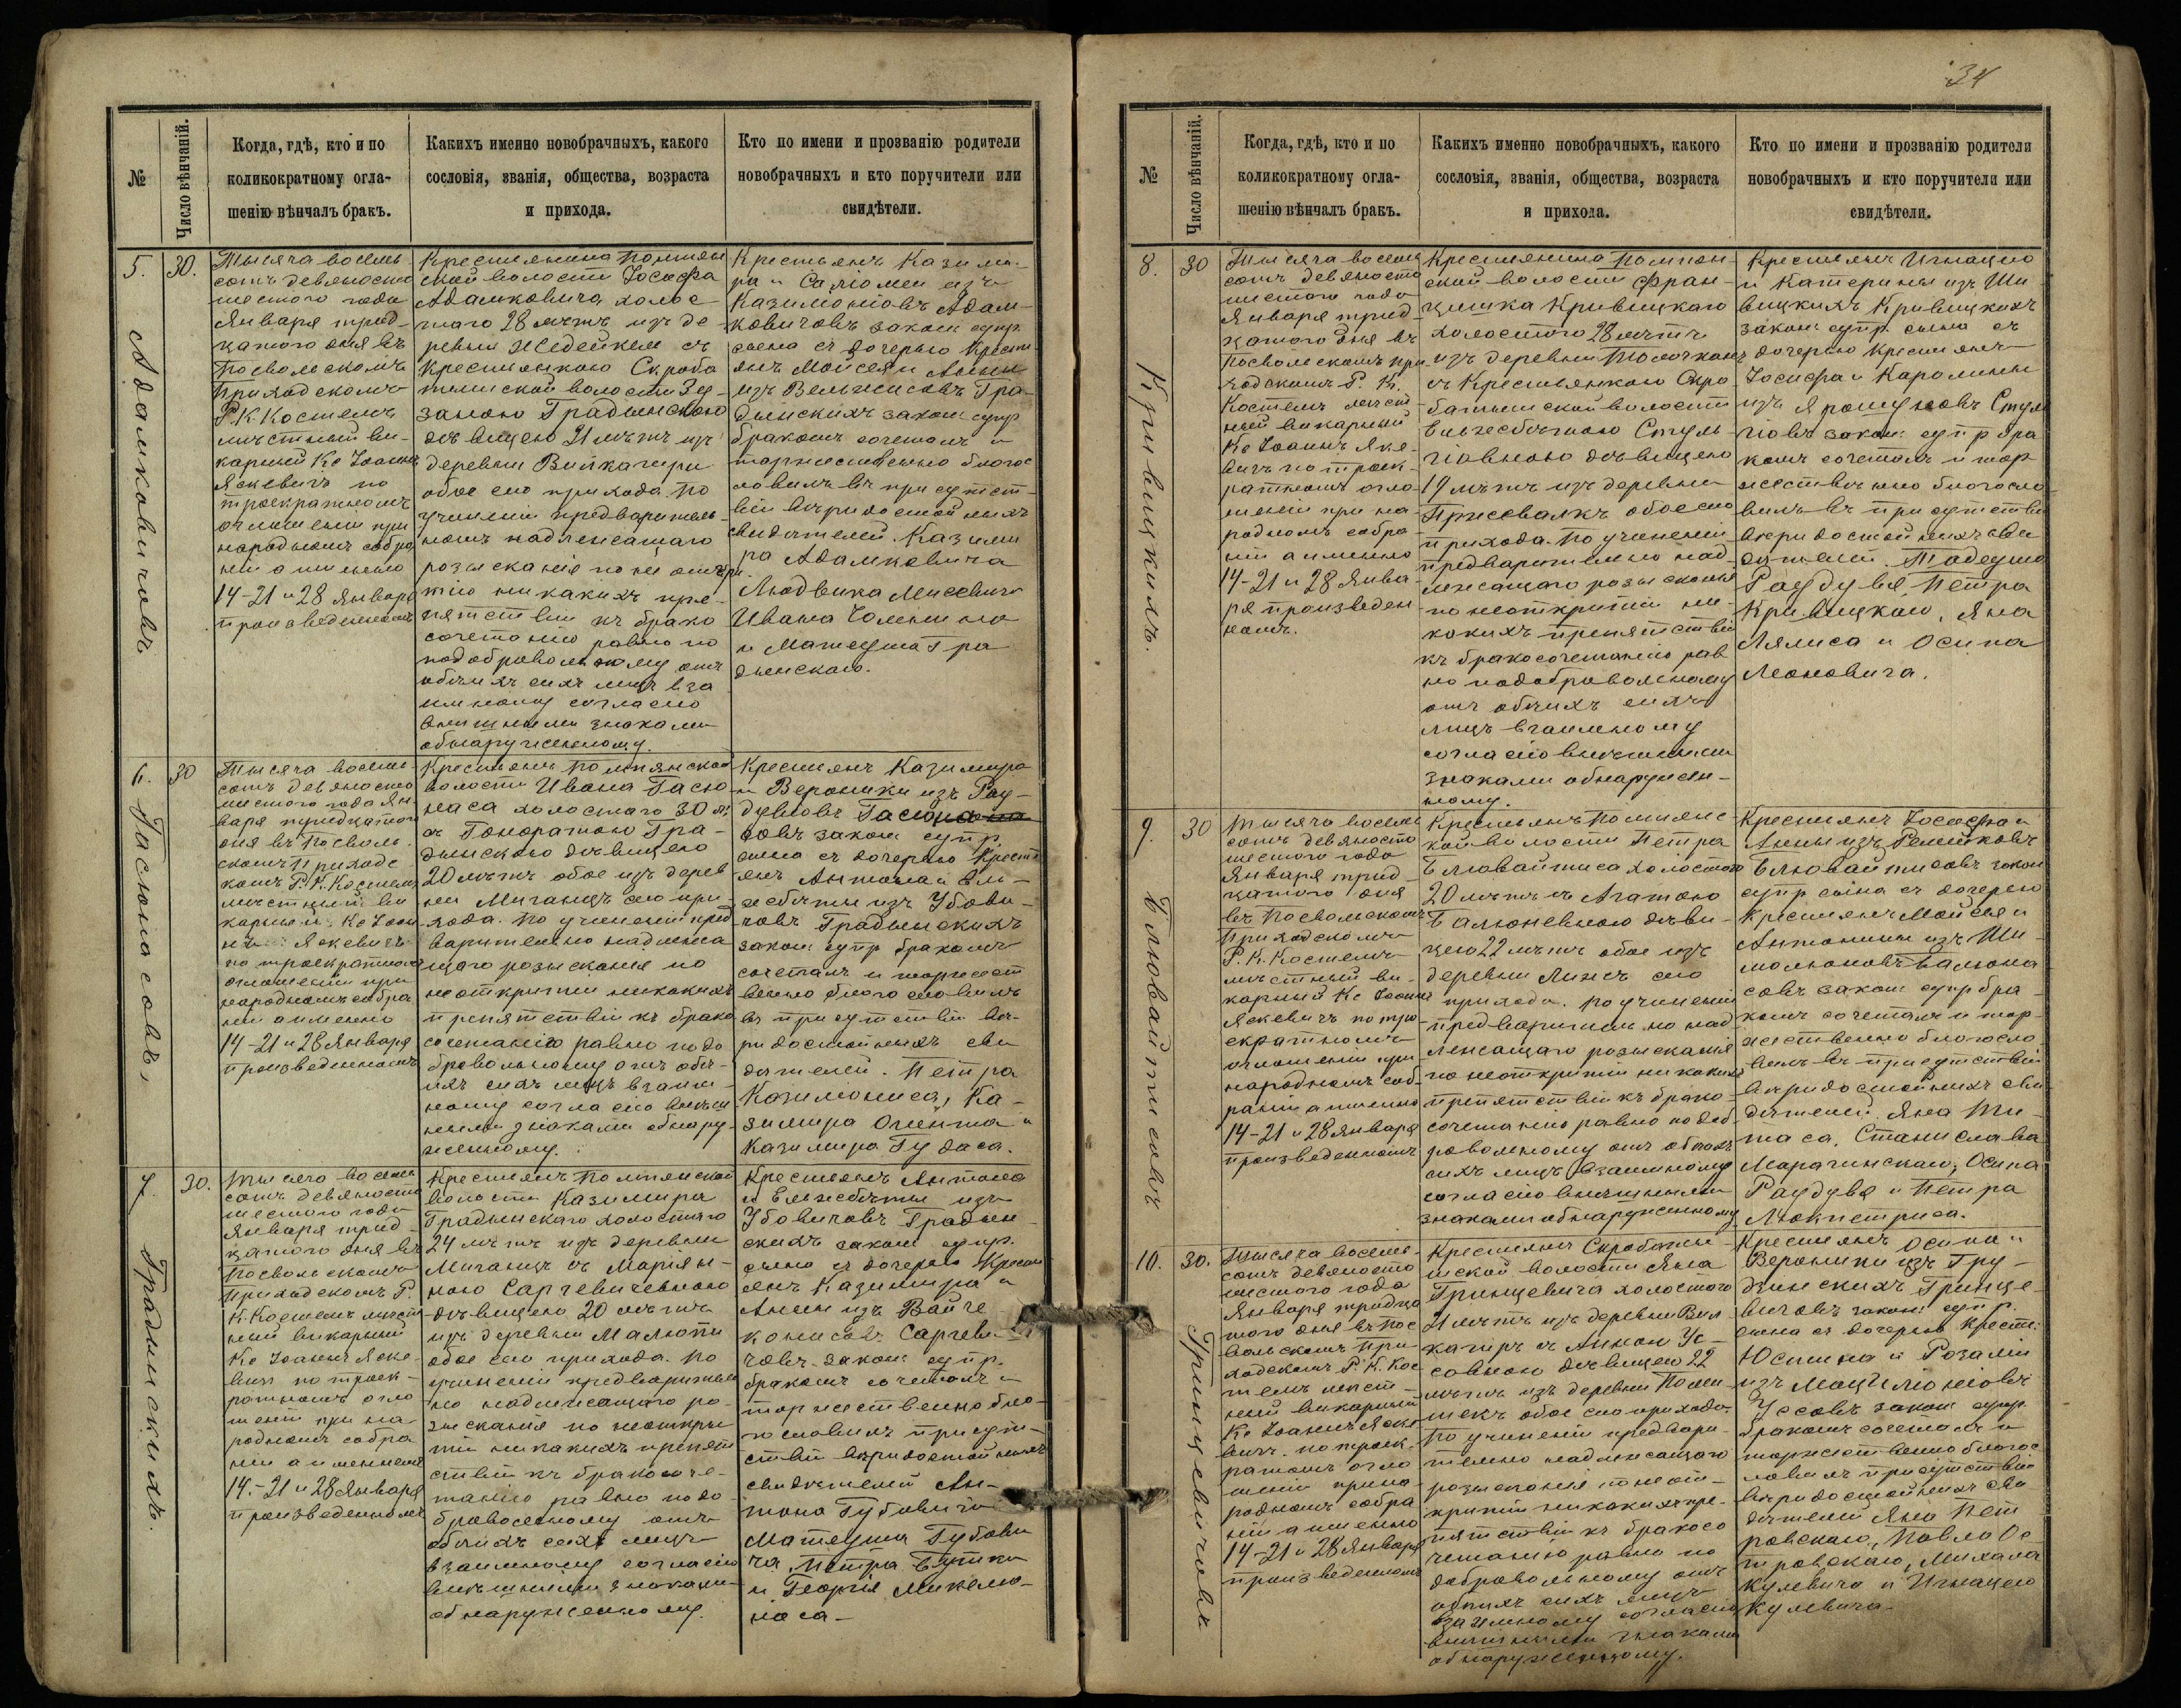 №
Число вѣнчаній.
Когда, гдѣ, кто и по
коликократному огла-
шенію вѣнчалъ бракъ.
Какихъ именно новобрачныхъ, какого
сословія, званія, общества, возраста
и прихода.
Кто по имени и прозванію родители
новобрачныхъ и кто поручители или
свидѣтели.
5.
Адамковичовъ
30.
Тысяча восемь
сотъ девяносто
шестого года
Января трид-
цатого дня въ
Посвольскомъ
Приходскомъ
Р. К. Костелѣ
мѣстный ви-
карный Кс Іоаннъ
Яскевичъ по
троекратномъ
оглашеніи при
народномъ собра
ніи а именно
14-21 и 28 Января
произведенномъ
Крестьянина Помпян
ской волости Іосифа
Адамковича холос-
таго 28 лѣтъ изъ де-
ревни съ
Крестьянкою Скроба
тишской волости
Градынскою
дѣвицею 21 лѣтъ изъ
деревни Вилкагири
обое сего прихода. По
учиненіи предваритель-
номъ надлежащаго
розысканія по не откры
тію никакихъ пре-
пятствій къ брако
сочетанію равно по
подобровольному отъ
обоихъ сихъ лицъ вза
имному согласію
внѣшными знаками
обнаруженному.
Крестьянъ Казими-
ра и Саломеи изъ
Казимонтовъ Адам-
ковичовъ закон: супр.
сына съ дочерью Кресть
янъ Мойсея и Анны
изъ Вельжисовъ Гра-
дынскихъ закон: супр
бракомъ сочеталъ и
торжественно благос
ловилъ въ присутст-
віи вѣридостойныхъ
свидѣтелей. Казими
ра Адамковича
Людвика Мисевича
Ивана
и Матеуша Гра
дынскаго.
6.
Гасюнасовъ.
30
Тысяча восемь
сотъ девяносто
шестого года Ян-
варя тридцатого
дня въ Посволь-
скомъ Приходс
комъ Р. К. Костелѣ
мѣстный ви
карный Кс Іоан
нъ Яскевичъ
по троекратномъ
оглашеніи при
народномъ собра
ніи а именно
14-21 и 28 Января
произведенномъ
Крестьянъ Помпянской
волости Ивана Гасю-
наса холостаго 30 л.
съ Гоноратою Гра-
дынскою дѣвицею
20 лѣтъ обое изъ дерев
ни Миганцъ сего при-
хода. По учиненіи пред
варительно надлежа
щаго розысканія по
неоткрытіи никакихъ
препятствій къ брако
сочетанію равно по до
бровольному отъ обо-
ихъ сихъ лицъ взаим-
ному согласію внѣш
ными знаками обнару-
женному.
Крестьянъ Казимира
и Вероники изъ Рау-
дувювъ
совъ закон: супр.
сына съ дочерью Кресть
янъ Антона и Ель-
жбѣты изъ Убови-
човъ Градынскихъ
закон: супр бракомъ
сочеталъ и торжест
венно благословилъ
въ присутствіи вѣ-
ридостойныхъ сви
дѣтелей. Петра
Казимониса, Ка-
зимира и
Казимира Гудаса.
7.
Градынскихъ.
30.
Тысяча восемь
сотъ девяносто
шестого года
Января трид-
цатого дня въ
Посвольскомъ
Приходскомъ Р.
К. Костелѣ мѣст
ный викарный
Кс Іоаннъ Яске-
вичъ по троек-
ратномъ огла
шеніи при на-
родномъ собра
ніи а именно
14.-21 и 28 Января
произведенномъ
Крестьянъ Помпянской
волости Казимира
Градынскаго холостаго
24 лѣтъ изъ деревни
Миганцъ съ Маріян-
ною Саргевичевною
дѣвицею 20 лѣтъ
изъ деревни Малюпи
обое сего прихода. По
учиненіи предваритель
но надлежащаго ро-
зысканія по неоткры
тіи никакихъ препят
ствій къ бракосоче-
танію равно подо-
бровольному отъ
обоихъ сихъ лицъ
взаимному согласію
внѣшными знаками
обнаруженному.
Крестьянъ Антона
и Ельжбѣты изъ
Убовичовъ Градын-
скихъ закон: супр.
сына съ дочерью Кресть
янъ Казимира и
Анны изъ Вайче
конисовъ Саргеви-
човъ закон: супр.
бракомъ сочеталъ и
торжественно бла-
гословилъ присут-
ствіи вѣридостойныхъ
свидѣтелей Ан-
тона Губовича
Матеуша Губови
ча, Петра
и Георгія Микелю-
наса
34
№
Число вѣнчаній.
Когда, гдѣ, кто и по
коликократному огла-
шенію вѣнчалъ бракъ.
Какихъ именно новобрачныхъ, какого
сословія, званія, общества, возраста
и прихода.
Кто по имени и прозванію родители
новобрачныхъ и кто поручители или
свидѣтели.
8.
Кривицкихъ.
30
Тысяча восемь
сотъ девяносто
шестого года
Января трид-
цатого дня въ
Посвольскомъ При-
ходскомъ Р. К.
Костелѣ мѣст
ный викарный
Кс Іоаннъ Яске-
вичъ по троек-
ратномъ огла-
шеніи при на-
родномъ собра
ніи а именно
14-21 и 28 Янва-
ря произведен
номъ.
Крестьянина Помпян-
ской волости Фран-
цишка Кривицкаго
холостого 28 лѣтъ
изъ деревни
съ Крестьянкою Скро
батишской волости
Ельжбѣтою Стуль-
говною дѣвицею
19 лѣтъ изъ деревни
обое сего
прихода. По учиненіи
предварительно над
лежащаго розысканія
по неоткрытіи ни-
какихъ препятствій
къ бракосочетанію рав
но подобровольному
отъ обоихъ сихъ
лицъ взаимному
согласію внѣшными
знаками обнаружен-
ному.
Крестьянъ Игнацію
и Катерины изъ Ши
вицкихъ Кривицкихъ
закон: супр. сына съ
дочерью Крестьянъ
Іосифа и Каролины
изъ Ярошуновъ Стуль
гіовъ закон: супр бра
комъ сочеталъ и тор
жественно благосло-
вилъ въ присутствіи
вѣридостойныхъ сви
дѣтелей. Тадеуша
Раудувя, Петра
Кривицкаго, Яна
Лялиса и Осипа
Леоновича.
9.
30
Тысяча восемь
сотъ девяносто
шестого года
Января трид-
цатого дня
въ Посвольскомъ
Приходскомъ
Р. К. Костелѣ
мѣстный ви-
карный Кс Іоаннъ
Яскевичъ по тро-
екратномъ
оглашеніи при
народномъ соб-
раніи а именно
14-21 и 28 Января
произведенномъ
Крестьянъ Помпянс-
кой волости Петра
холостого
20 лѣтъ съ Агатою
Балюневною дѣви-
цею 22 лѣтъ обое изъ
деревни сего
прихода. По учиненіи
предварительно над
лежащаго розысканія
по неоткрытіи никакихъ
препятствій къ брако-
сочетанію равно подоб-
ровольному отъ обоихъ
сихъ лицъ взаимному
согласію внѣшными
знаками обнаруженному
Крестьянъ Іосифа и
Анны изъ
закон
супр сына съ дочерью
Крестьянъ Мойсея и
Антонины изъ Ши-
молюновъ Балюна
совъ закон: супр бра-
комъ сочеталъ и тор-
жественно благосло-
вилъ въ присутствіи
вѣридостойныхъ сви
дѣтелей. Яна Ти-
таса, Станислава
Марагинскаго, Осипа
Раудувя и Петра
Люкпетриса.
10.
Гринцевичовъ
30.
Тысяча восемь-
сотъ девяносто
шестого года
Января тридца
того дня въ Пос
вольскомъ При-
ходскомъ Р. К. Кос
телѣ мѣст-
ный викарный
Кс Іоаннъ Яске
вичъ. по троек-
ратномъ огла
шеніи при на
родномъ собра
ніи а именно
14-21 и 28 Января
произведенномъ
Крестьянъ Скробати-
шской волости Яна
Гринцевича холостого
21 лѣтъ изъ деревни Вил
кагиръ съ Анною Ус-
совною дѣвицею 22
лѣтъ изъ деревни
обое сего прихода.
По учиненіи предвари-
тельно надлежащаго
розысканія по неот-
крытіи никакихъ пре-
пятствій къ бракосо
четанію равно по
добровольному отъ
обоихъ сихъ лицъ
взаимному согласію
внѣшными знаками
обнаруженному.
Крестьянъ Осипа и
Вероники изъ Гру-
дзинскихъ Гринце-
вичовъ закон: супр.
сына съ дочерью Кресть:
Юстина и Розаліи
изъ Мацилюніовъ
Уссовъ закон супр
бракомъ сочеталъ и
торжественно благос
ловилъ присутствіи
вѣридостойныхъ сви
дѣтелей Яна Пет
ровскаго, Павла Ос
тровскаго, Михала
Кулевича и Игнацего
Кулевича